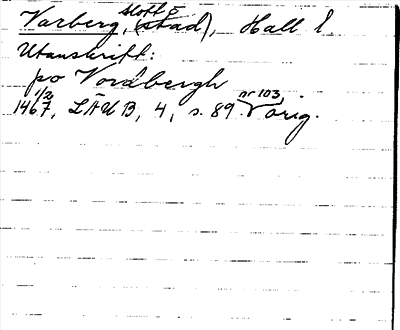 Varberg, slott o (stad), Hall l.
Utanskrift:
po Vordbergh
1467 1/2, LÄUB, 4, s. 89 nr 103, orig.